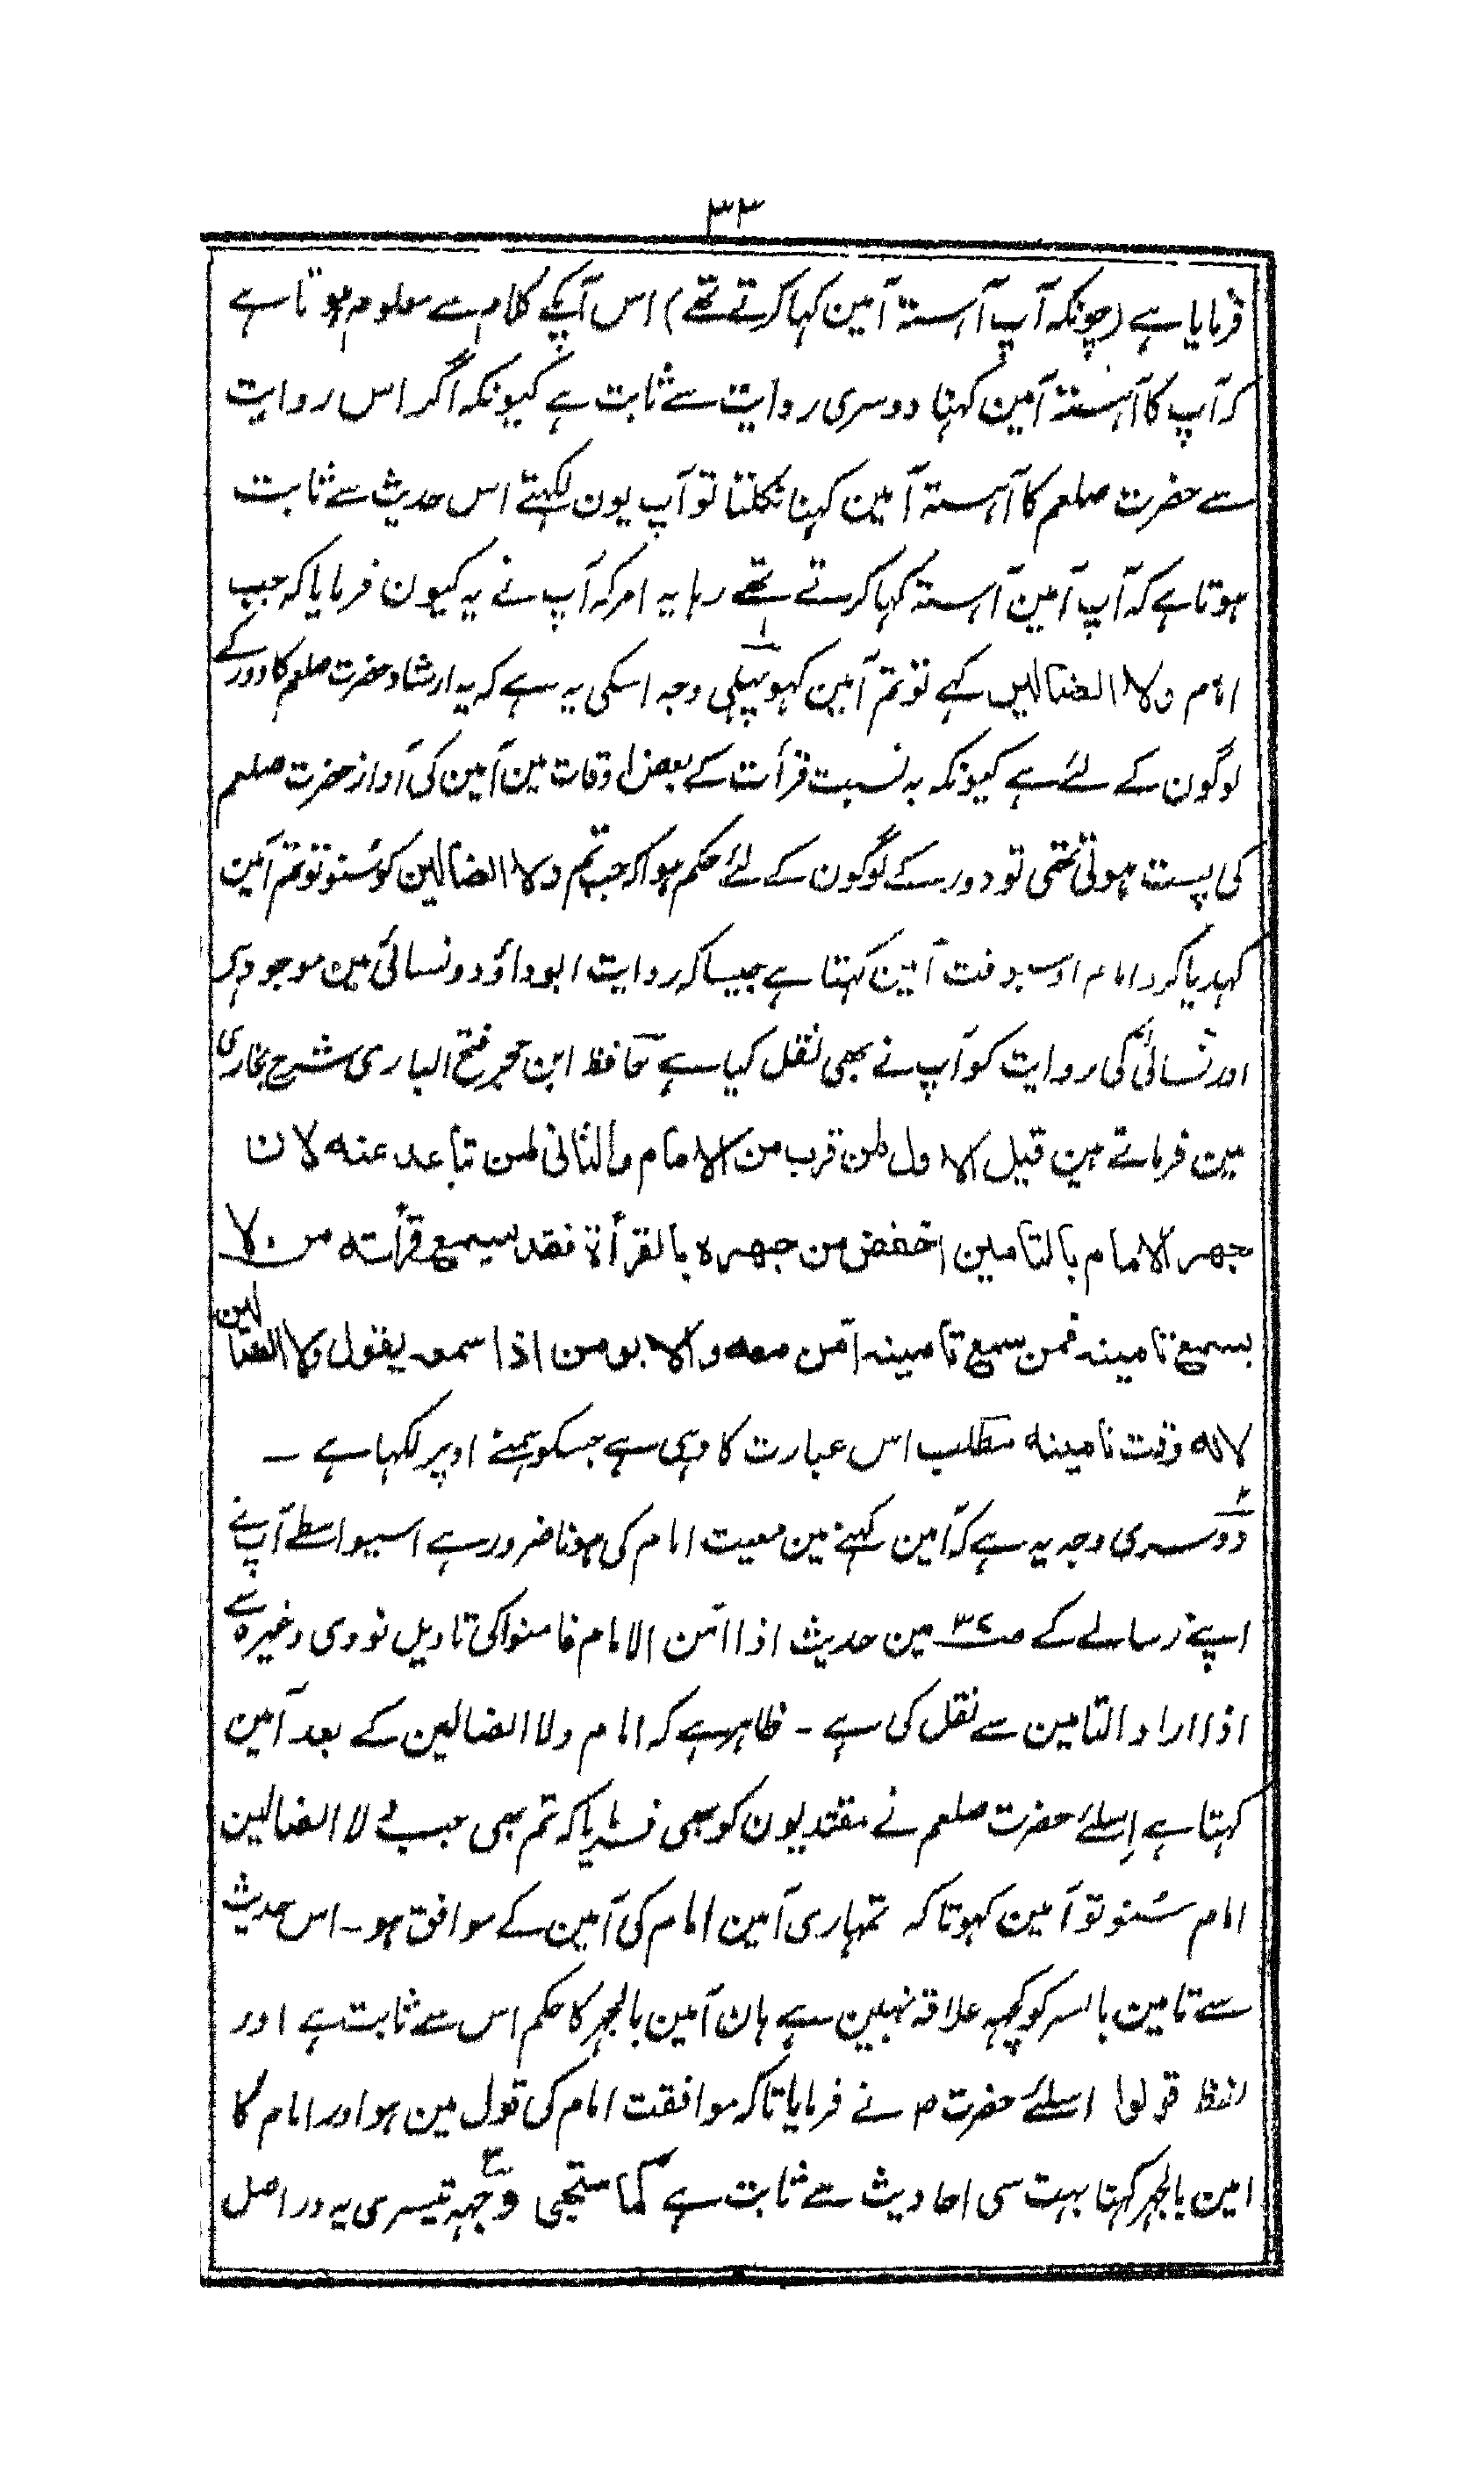 ۳۳
فرمایا ہے (چونکہ آپ آہستہ آمین کہا کرتے تھے) اس آپکے کلام سے معلوم ہوتا ہے
کہ آپ کا آہستہ آمین کہنا دوسری روایت سے ثابت ہے کیونکہ اگر اس روایت
سے حضرت صلعم کا آہستہ آمین کہنا نکلتا تو آپ یون لکہتے اس حدیث سے ثابت
ہوتا ہے کہ آپ آمین آہستہ کہا کرتے تھے رہا یہ امر کہ آپ نے یہ کیون فرمایا کہ جب
امام ولا الضالین کہے تو تم آمین کہو پہلی وجہ اسکی یہ ہے کہ یہ ارشاد حضرت صلعم کا دور کے
لوگون کے لئے ہے کیونکہ بہ نسبت قرأت کے بعض اوقات مین آمین کی آواز حضرت صلعم
کی پست ہوتی تھی تو دور کے لوگون کے لئے حکم ہوا کہ جب تم ولا الضالین کو سنو تو تم آمین
کہدیا کرو امام اوسوقت آمین کہتا ہے جیسا کہ روایت ابوداؤد و نسائی مین موجود ہی
اور نسائی کی روایت کو آپ نے بھی نقل کیا ہے حافظ ابن حجر فتح الباری شرح بخاری
مین فرماتے ہین قیل الاول لمن قرب من الامام والثانی لمن تباعد عنہ لان
جھر الامام بالتامین اخفض من جھرہ بالقرأۃ فقد سیمع قرأتہ من لا
یسمع تامینہ فمن سمع تامینہ امّن معہ والا یومن اذا سمعہ یقول ولا الضالین
لانہ وقت تامینہ مطلب اس عبارت کا وہی ہے جسکو ہمنے اوپر لکہا ہے ۔
دوسری وجہ یہ ہے کہ آمین کہنے مین معیت امام کی ہونا ضرور ہے اسیواسطے آپ نے
اپنے رسالے کے ص۳۴ مین حدیث اذا امّن الامام فامنوا کی تاویل نووی وغیرہ سے
اذا اراد التامین سے نقل کی ہے ۔ ظاہر ہے کہ امام ولا الضالین کے بعد آمین
کہتا ہے اِسلئے حضرت صلعم نے مقتدیون کو بھی فرمایا کہ تم بھی جب ولا الضالین
امام سُنو تو آمین کہو تاکہ تمہاری آمین امام کی آمین کے موافق ہو ۔ اس حدیث
سے تامین بالسر کو کچہہ علاقہ نہین ہے ہان آمین بالجہر کا حکم اس سے ثابت ہے اور
لفظ قولوا اسلئے حضرت ص نے فرمایا تاکہ موافقت امام کی قول مین ہو اور امام کا
امین بالجہر کہنا بہت سی احادیث سے ثابت ہے کما ستجی وجہہ تیسری یہ در اصل